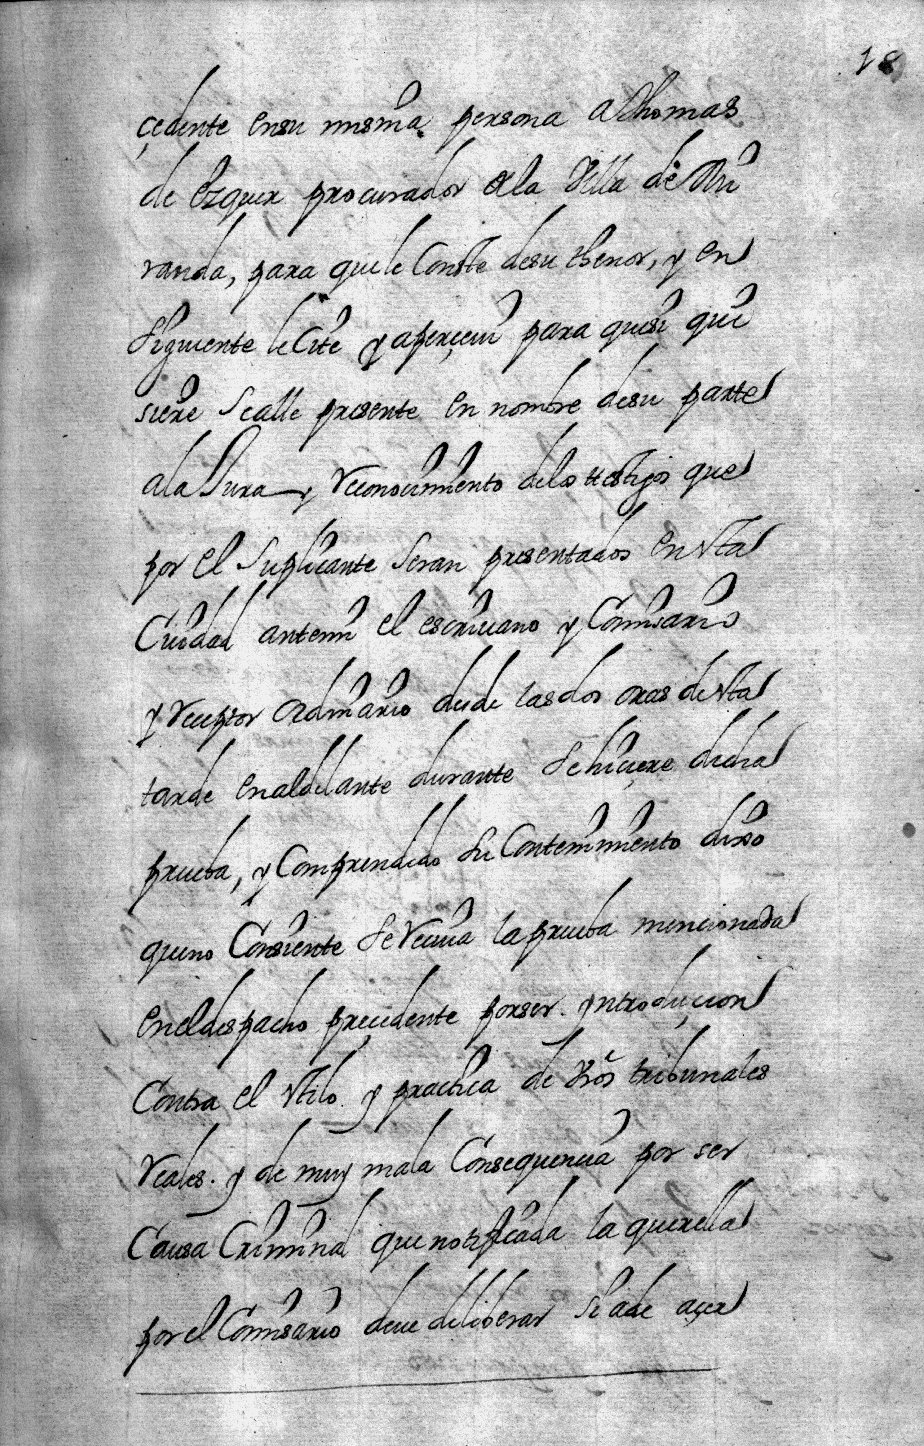 18
çedente ensu misma persona a Thomas
de Ezquer procurador de la Villa de Mi
randa, para que le Conste desu thenor, y en
siguiente le Cite y aperçeui para quesi qui
siere sealle presente en nombre desu parte
ala Jura y Reconocimiento delos testigos que
por el Suplicante seran presentados en esta
Ciudad antemi el escriuano y Comisario
y Receptor ordinario desde las dos oras de esta
tarde en aldelante durante se hiciere dicha
prueba, y Comprendido su Contenimiento dixo
queno Consiente se Reciua la prueba mencionada
en el despacho precedente por ser yntroduçion
Contra el estilo y practica de vros tribunales
Reales. y de muy mala Consequencia por ser
Causa Criminal que notificada la querella
por el Comisario deue deliberar si a de açer